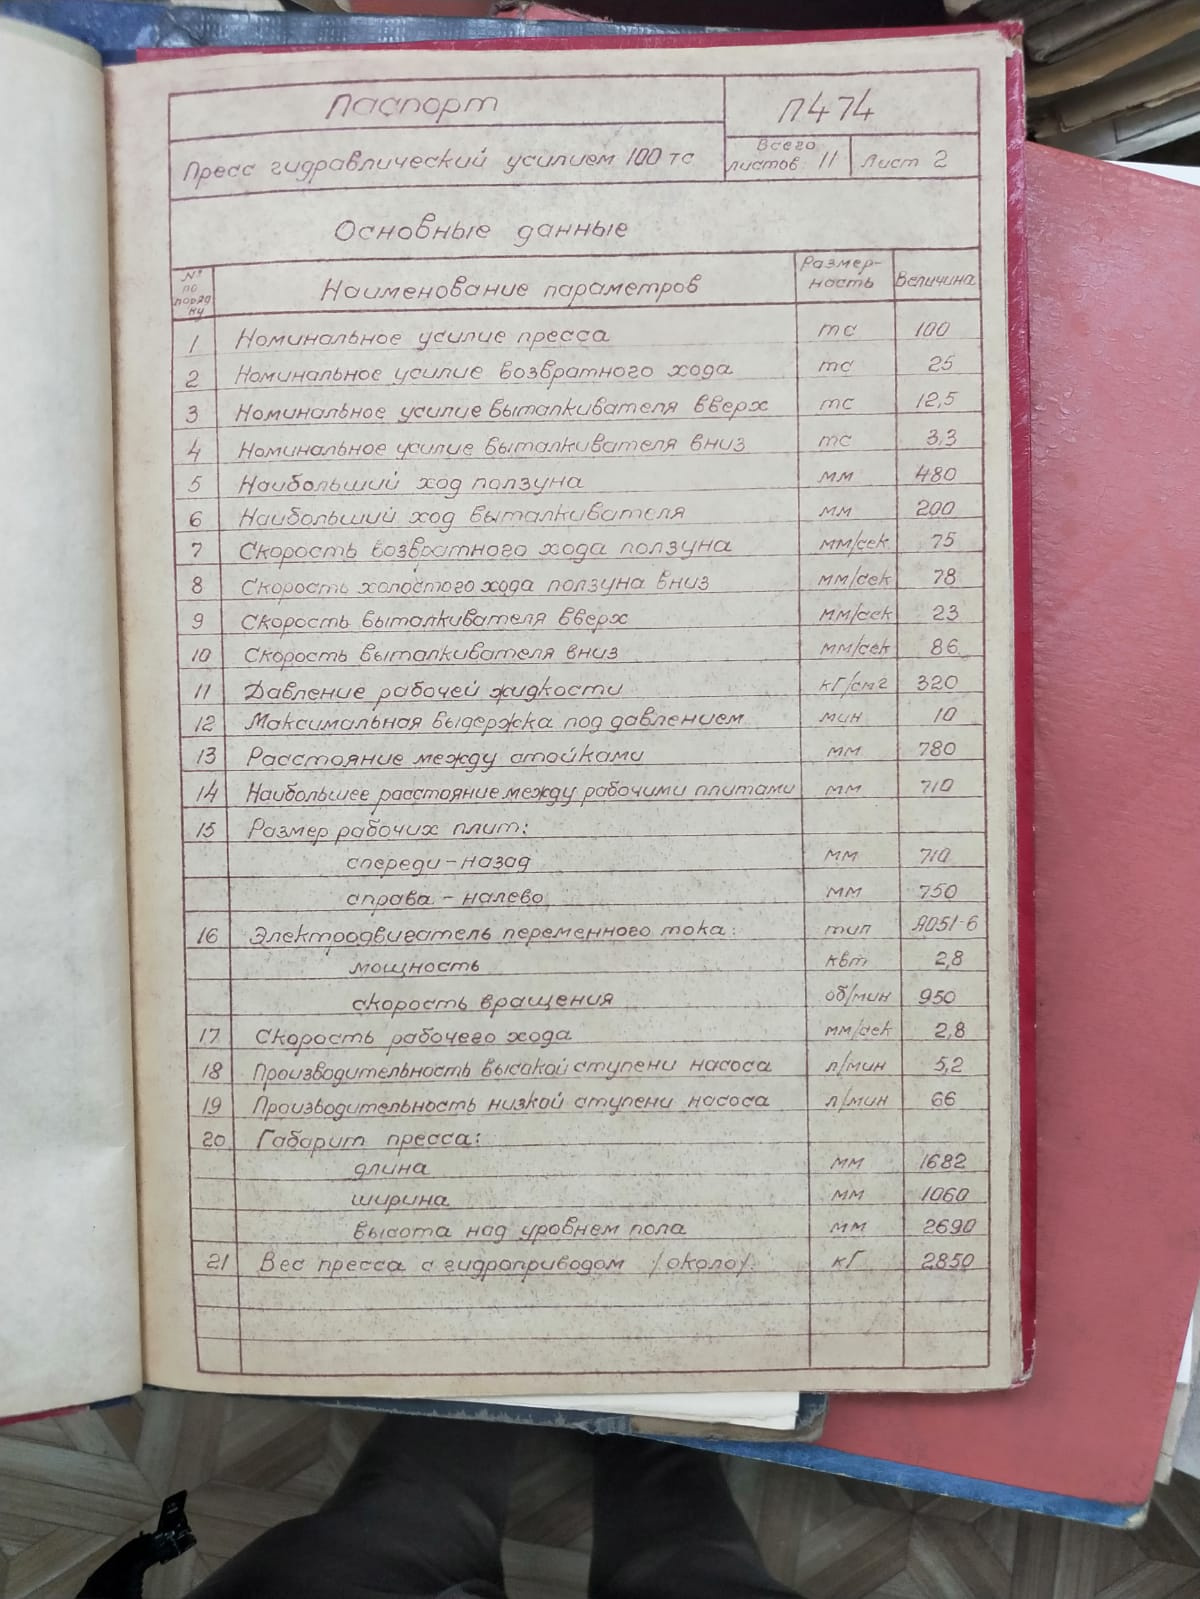 Паспорт
П474
Пресс гидравлический усилием 100 тс
Всего листов 11
Лист 2
Основные данные
№ по порядку Наименование параметров Размерность Величина
1 Номинальное усилие пресса тс 100
2 Номинальное усилие возвратного хода тс 25
3 Номинальное усилие выталкивателя вверх тс 12,5
4 Номинальное усилие выталкивателя вниз тс 3,3
5 Наибольший ход ползуна мм 480
6 Наибольший ход выталкивателя мм 200
7 Скорость возвратного хода ползуна мм/сек 75
8 Скорость холостого хода ползуна вниз мм/сек 78
9 Скорость выталкивателя вверх мм/сек 23
10 Скорость выталкивателя вниз мм/сек 86
11 Давление рабочей жидкости кГ/см2 320
12 Максимальная выдержка под давлением мин 10
13 Расстояние между стойками мм 780
14 Наибольшее расстояние между рабочими плитами мм 710
15 Размер рабочих плит:
спереди-назад мм 710
справа - налево мм 750
16 Электродвигатель переменного тока: тип АО51-6
мощность квт 2,8
скорость вращения об/мин 950
17 Скорость рабочего хода мм/сек 2,8
18 Производительность высокой ступени насоса л/мин 5,2
19 Производительность низкой ступени насоса л/мин 66
20 Габарит пресса:
длина мм 1682
ширина мм 1060
высота над уровнем пола мм 2690
21 Вес пресса с гидроприводом /около/: кГ 2850